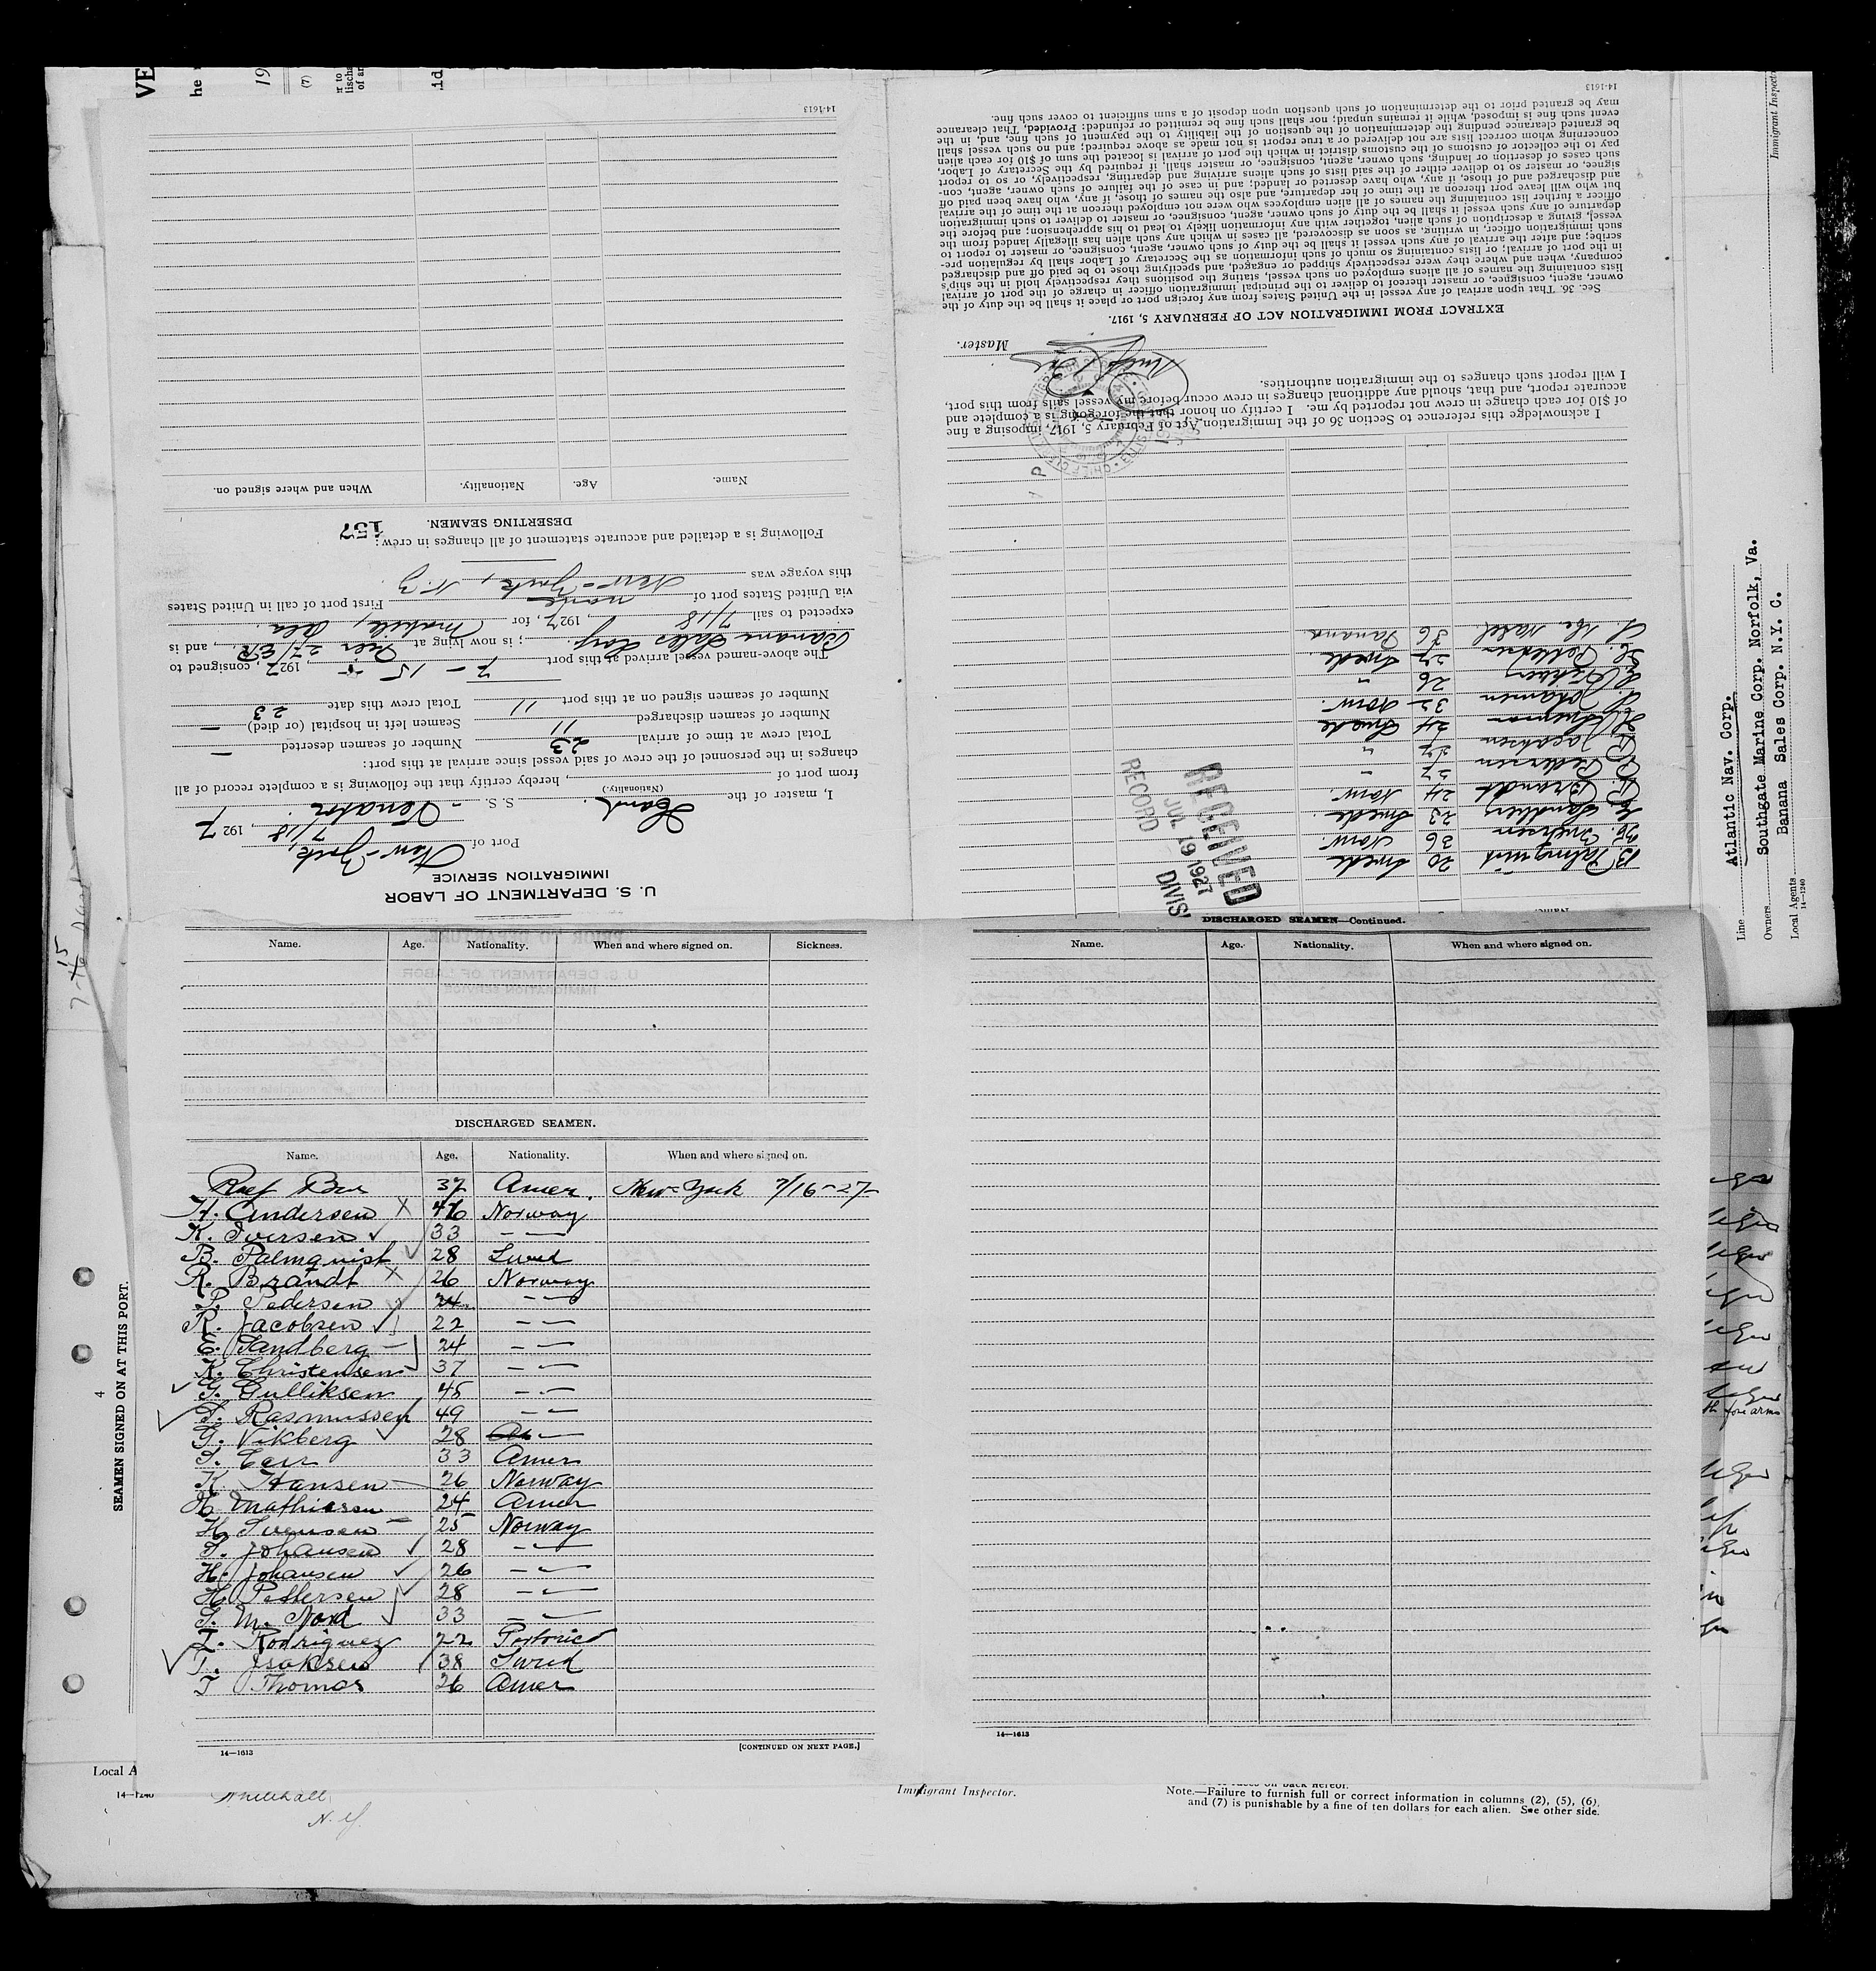 U. S. DEPARTMENT OF LABOR
IMMIGRATION SERVICE
Port of New-York, 7/18, 1927
I, master of the S. S. Venator
(Nationality.)
from port of , hereby certify that the following is a complete record of all
changes in the personnel of the crew of said vessel since arrival at this port:
Total crew at time of arrival 23 Number of seamen deserted —
Number of seamen discharged 11 Seamen left in hospital (or died) —
Number of seamen signed on at this port 11 Total crew this date 23
The above-named vessel arrived at this port 7-15, 1927, consigned to
Banana Sales Corp.; is now lying at Pier 27/ER, and is
expected to sail 7/18, 1927, for Mobile, Ala.
via United States port of none First port of call in United States
this voyage was New-York, N.Y.
Following is a detailed and accurate statement of all changes in crew:
157
DESERTING SEAMEN.
Name. Age. Nationality. When and where signed on.
14-1613
B. Palmquist 20 Swede
36 Norw.
E. Sandberg 23 Swede
R. Brandt 24 Norw.
P. Pedersen 27 "
R. Jacobsen 27 "
24 Swede
Johansen 32 Norw.
Vikberg 26 "
27 Swede
36 Panama
RECEIVED
JUL 19 1927
RECORD DIVIS
I acknowledge this reference to Section 36 of the Immigration Act of February 5, 1917, imposing a fine
of $10 for each change in crew not reported by me. I certify on honor that the foregoing is a complete and
accurate report, and that, should any additional changes in crew occur before my vessel sails from this port,
I will report such changes to the immigration authorities.
Master.
EXTRACT FROM IMMIGRATION ACT OF FEBRUARY 5, 1917.
Sec. 36. That upon arrival of any vessel in the United States from any foreign port or place it shall be the duty of the
owner, agent, consignee, or master thereof to deliver to the principal immigration officer in charge of the port of arrival
lists containing the names of all aliens employed on such vessel, stating the positions they respectively hold in the ship's
company, when and where they were respectively shipped or engaged, and specifying those to be paid off and discharged
in the port of arrival; or lists containing so much of such information as the Secretary of Labor shall by regulation pre-
scribe; and after the arrival of any such vessel it shall be the duty of such owner, agent, consignee, or master to report to
such immigration officer, in writing, as soon as discovered, all cases in which any such alien has illegally landed from the
vessel, giving a description of such alien, together with any information likely to lead to his apprehension; and before the
departure of any such vessel it shall be the duty of such owner, agent, consignee, or master to deliver to such immigration
officer a further list containing the names of all alien employees who were not employed thereon at the time of the arrival
but who will leave port thereon at the time of her departure, and also the names of those, if any, who have been paid off
and discharged and of those, if any, who have deserted or landed; and in case of the failure of such owner, agent, con-
signee, or master so to deliver either of the said lists of such aliens arriving and departing, respectively, or so to report
such cases of desertion or landing, such owner, agent, consignee, or master shall, if required by the Secretary of Labor,
pay to the collector of customs of the customs district in which the port of arrival is located the sum of $10 for each alien
concerning whom correct lists are not delivered or a true report is not made as above required; and no such vessel shall
be granted clearance pending the determination of the question of the liability to the payment of such fine, and, in the
event such fine is imposed, while it remains unpaid; nor shall such fine be remitted or refunded: Provided, That clearance
may be granted prior to the determination of such question upon deposit of a sum sufficient to cover such fine.
14-1613
Line Atlantic Nav. Corp.
Owners Southgate Marine Corp. Norfolk, Va.
Local Agents Banana Sales Corp. N.Y. C.
14-1240
Name. Age. Nationality. When and where signed on. Sickness.
DISCHARGED SEAMEN.
Name. Age. Nationality. When and where signed on.
37 Amer. New-York 7/16-27-
H. Andersen 46 Norway
K. Iversen 33 — —
B. Palmquist 28 Swed
R. Brandt 26 Norway
P. Pedersen 24 — —
R. Jacobsen 22 — —
E. Sandberg 24 — —
K. Christensen 37 — —
G. Gulliksen 45 — —
T. Rasmussen 49 — —
G. Vikberg 28 —
33 Amer
K Hansen 26 Norway
H Mathiesen 24 Amer
H Svensen 25 Norway
T. Johansen 28 — —
H. Johansen 26 — —
H Pettersen 28 — —
S. M. Nord 33 — —
I. Rodriguez 22 Portorico
T. Isaksen 38 Swed
T Thomas 26 Amer
14—1613 [CONTINUED ON NEXT PAGE.]
DISCHARGED SEAMEN—Continued.
Name. Age. Nationality. When and where signed on.
14—1613
SEAMEN SIGNED ON AT THIS PORT.
4
Local A
14—1240
Whitehall
N.Y.
Immigrant Inspector.
Note.—Failure to furnish full or correct information in columns (2), (5), (6),
and (7) is punishable by a fine of ten dollars for each alien. See other side.